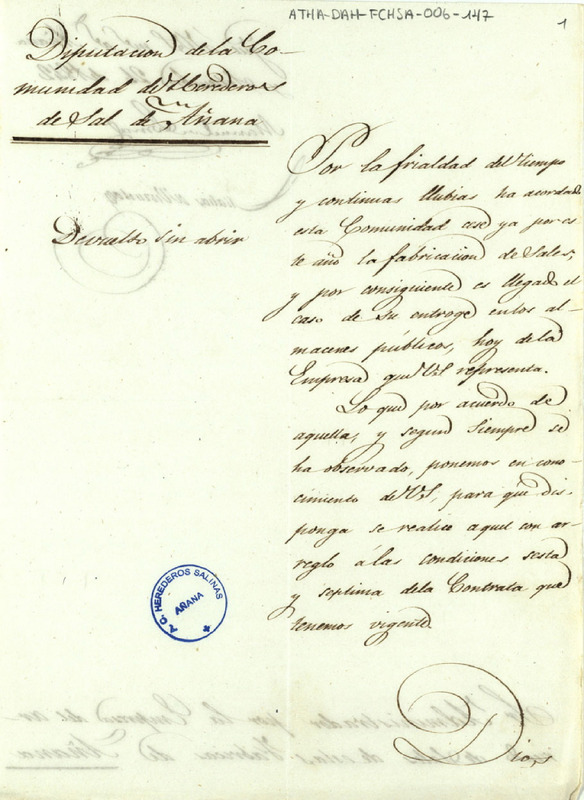 ATHA-DAH-FCHSA-006-147
1
Diputacion de la Co-
munidad de Herederos
de Sal de Añana
Devuelto sin abrir
Por la frialdad del tiempo
y continuas llubias ha acordado
esta Comunidad cese ya por es
te año la fabricacion de Sales,
y por consiguiente es llegado el
caso de su entroge en los al-
macenes públicos, hoy de la
Empresa que VS representa.
Lo que por acuerdo de
aquella, y segun siempre se
ha observado, ponemos en cono-
cimiento de VS, para que dis-
ponga se realice aquel con ar
reglo á las condiciones sesta
y septima dela Contrata que
tenemos vigente
A. C. HEREDEROS SALINAS
AÑANA
Dios